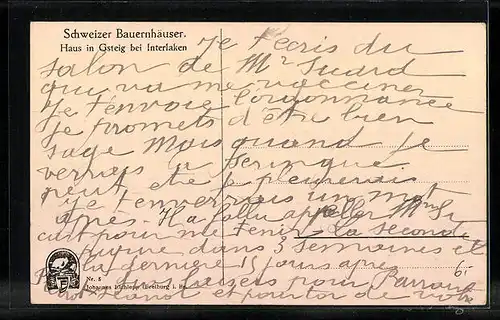 Schweizer Bauernhäuser.
Haus in Gsteig bei Interlaken
Je t'écris du
salon de Mr Sicard
qui va me vacciner
Je t'envoie l'ordonnance
Je promets d'être bien
sage Mais quand je
verrais la seringue
peut être je pleurerais
Je t'enverrais un mot
après. Il a fallu appeler Mr Si
card pour me tenir. La seconde
piqure dans 3 semaines et
la dernière 15 jours après
Nr. 8
Johannes Elchlepp Freiburg i. Br.
pour
et pour toi de
6.